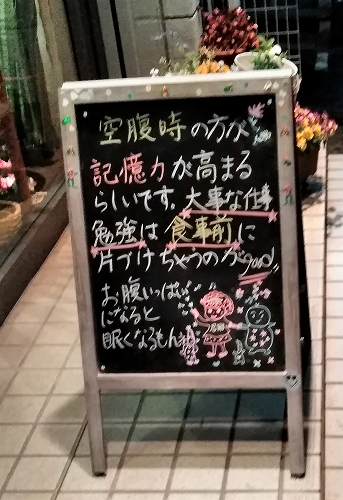 空腹時の方が
記憶力が高まる
らしいです。大事な仕事
勉強は食事前に
片づけちゃうのがgood!!
お腹いっぱい
になると
眠くなるもん